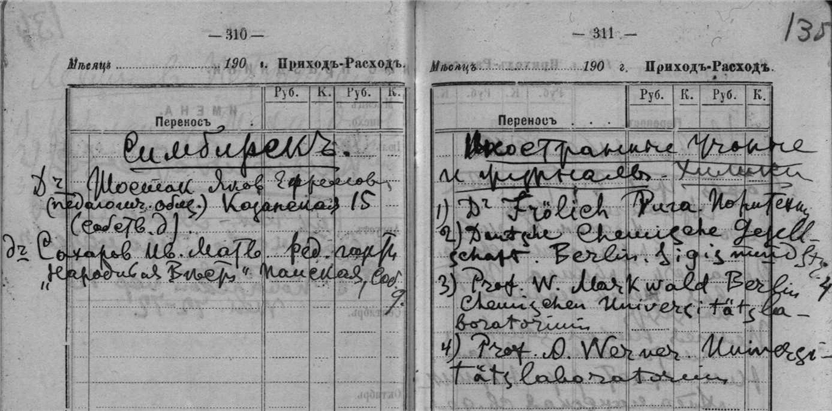 — 310 —
Мѣсяцъ 190 г. Приходъ-Расходъ.
Руб. К. Руб. К.
Переносъ
Симбирскъ.
Дъ Шостак Яков Ефремов.
(педагогич. общ.) Казанская 15
(собств. д).
дъ Сахаров Ив. Матв. ред. газеты
„Народныя Вести" Панская, соб
— 311 —
135
Мѣсяцъ 190 г. Приходъ-Расходъ.
Руб. К. Руб. К.
Переносъ . . .
Иностранные учоные
и журналы - Химики
1) Dr Frölich Рига Политехн
2) Deutsche Chemische Gesell-
schaft. Berlin. Sigismundstr. 4
3) Prof. W. Markwald Berlin
Chemischen Universitätsla-
boratorium
4) Prof. A. Werner. Universi-
tätslaboratorium